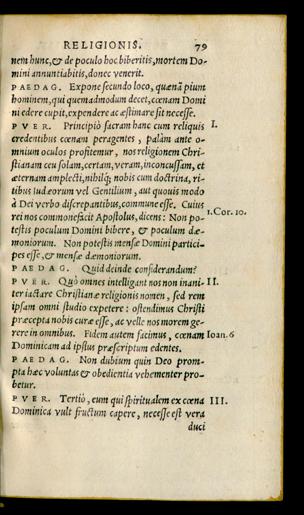 RELIGIONIS. 79
nem hunc, & de poculo hoc biberitis, mortem Do-
mini annuntiabitis, donec venerit.
PAEDAG. Expone secundo loco, quænā pium
hominem, qui quemadmodum decet, cœnam Domi
ni edere cupit, expendere ac æstimare sit necesse.
PVER. Principiò sacram hanc cum reliquis I.
credentibus cœnam peragentes, palàm ante o-
mnium oculos profitemur, nos religionem Chri-
stianam ceu solam, certam, veram, inconcussam, et
æternam amplecti, nihilq; nobis cum doctrina, ri-
tibus Iudæorum vel Gentilium, aut quouis modo
à Dei verbo discrepantibus, commune esse. Cuius
rei nos commonefacit Apostolus, dicens: Non po- 1.Cor. 10.
testis poculum Domini bibere, & poculum dæ-
moniorum. Non potestis mensæ Domini partici-
pes esse, & mensæ dæmoniorum.
PAEDAG. Quid deinde considerandum?
PVER. Quò omnes intelligant nos non inani- II.
ter iactare Christianæ religionis nomen, sed rem
ipsam omni studio expetere: ostendimus Christi
præcepta nobis curæ esse, ac velle nos morem ge-
rere in omnibus. Fidem autem facimus, cœnam Ioan. 6
Dominicam ad ipsius præscriptum edentes.
PAEDAG. Non dubium quin Deo prom-
pta hæc voluntas & obedientia vehementer pro-
betur.
PVER. Tertiò, cum qui spiritualem ex cœna III.
Dominica vult fructum capere, necesse est vera
duci